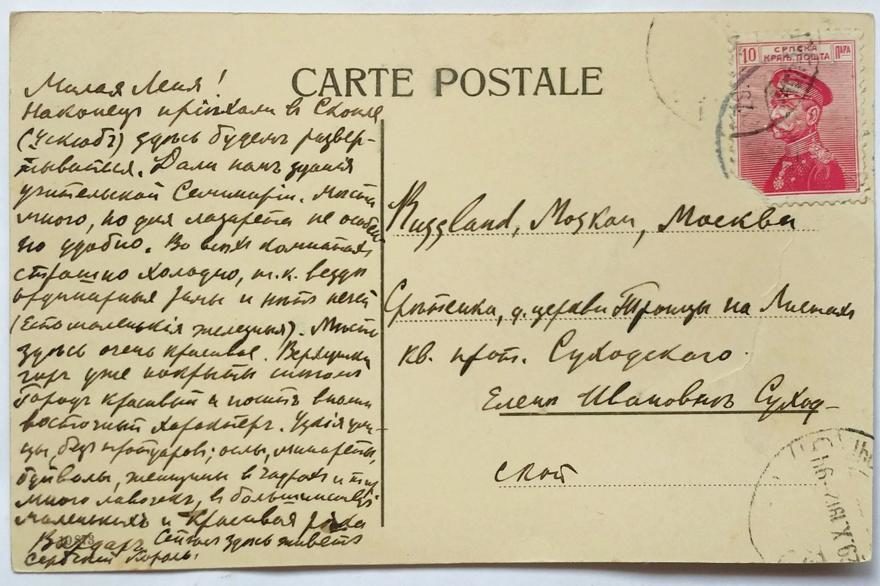 CARTE POSTALE
10 СРПСКА ПАРА
КРАЉ. ПОШТА
Милая Леля!
Наконецъ пріѣхали въ Скопле
(Ускюбъ) здѣсь будемъ развер-
тываться. Дали намъ зданія
учительской Семинаріи. Мѣста
много, но для лазарета не особен
но удобно. Во всѣхъ комнатахъ
страшно холодно, т.к. вездѣ
ординарныя рамы и нѣтъ печей
(Есть маленькія желѣзныя). Мѣсто
здѣсь очень красивое. Вершины
горъ уже покрыты снѣгомъ
Городъ красивый и носитъ вполнѣ
восточный характеръ. Узкія ули-
цы, безъ тротуаровъ; ослы, минареты,
буйволы, женщины въ чадрахъ и т.п.
много лавочекъ, въ большинствѣ
маленькихъ и красивая рѣка
Вардаръ. Сейчасъ здѣсь живетъ
сербскій Король.
Russland, Москаи, Москва
Срѣтенка, д. церкви Троицы на Листахъ
кв. прот. Суходскаго.
Елены Ивановнѣ Суход-
ской